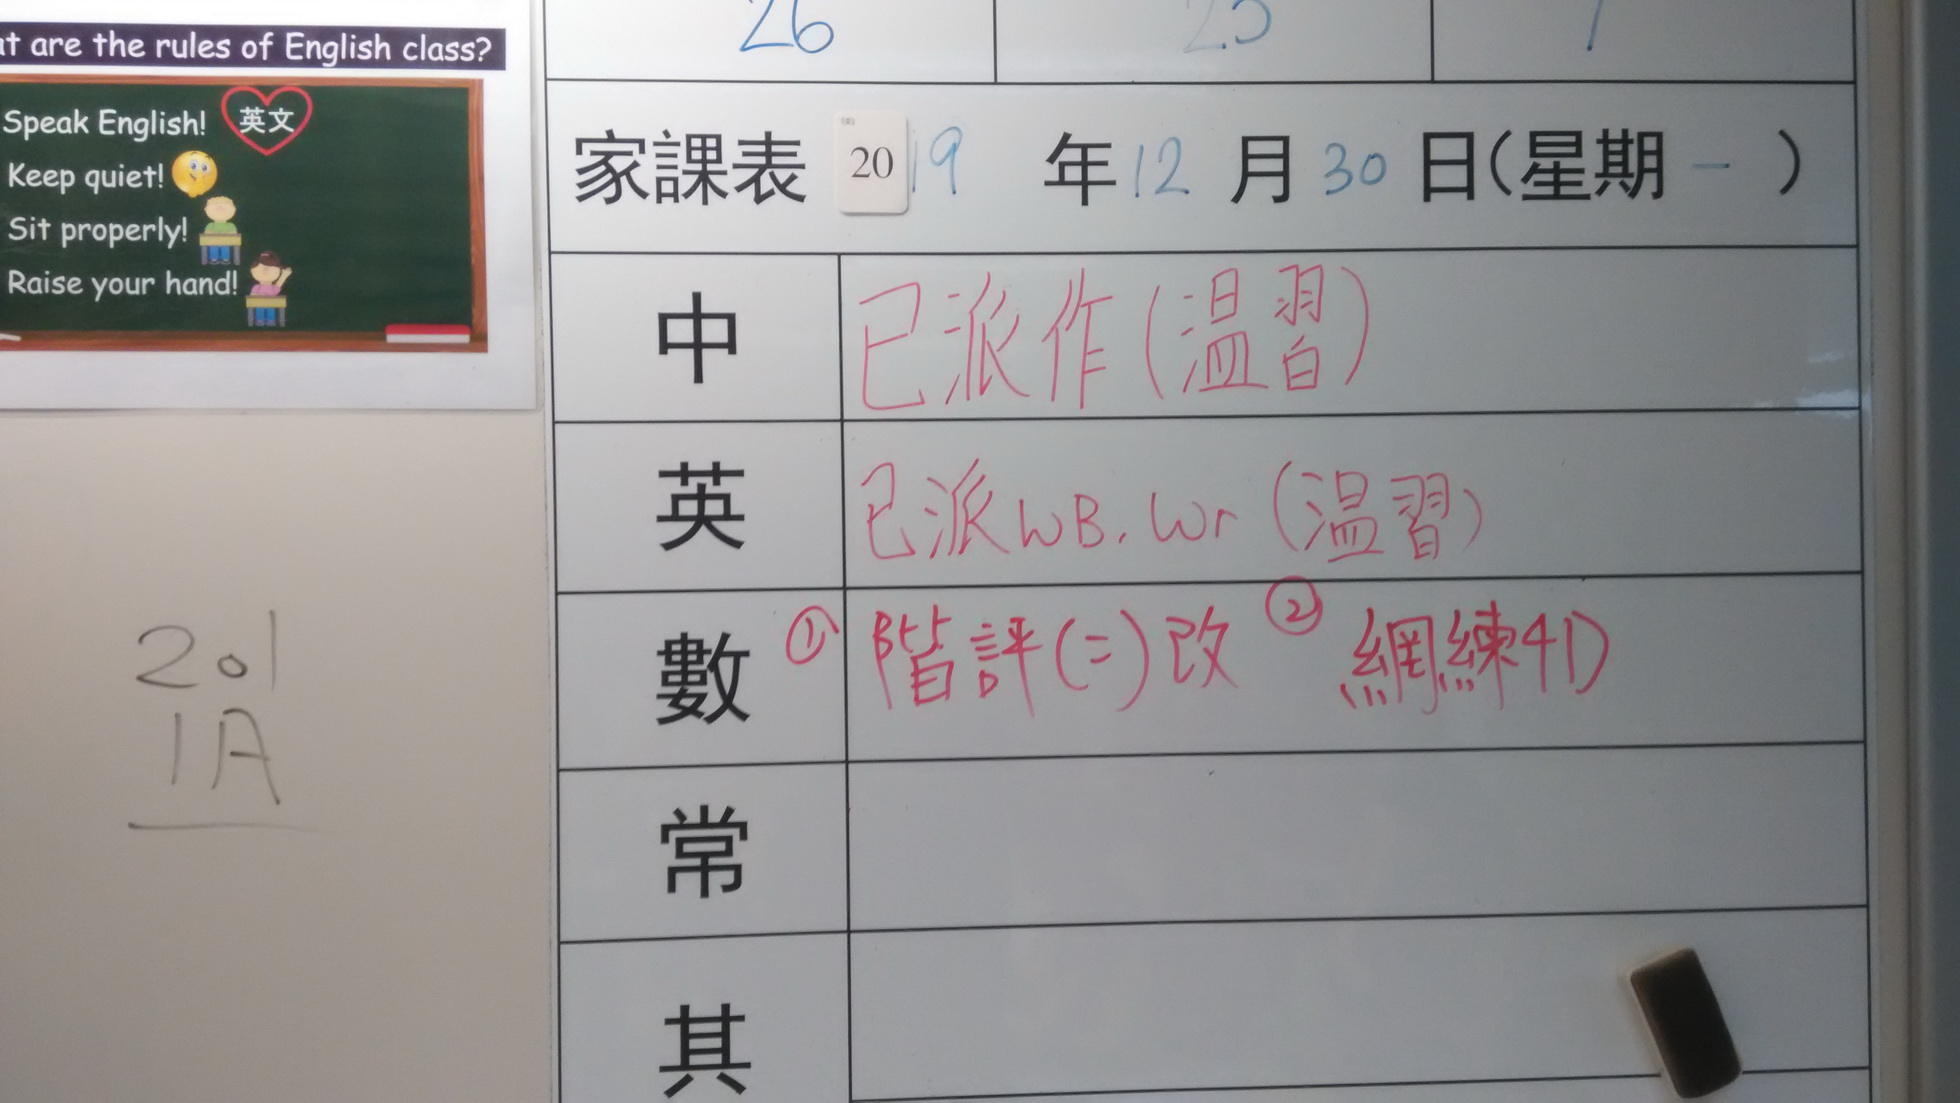 t are the rules of English class?
Speak English!
英文
Keep quiet!
Sit properly!
Raise your hand!
26 25 1
家課表 2019 年 12 月 30 日(星期 一 )
中 已派作(温習)
英 已派WB. Wr (温習)
數 ① 階評(二)改 ② 網練4D
常
其
201
1A